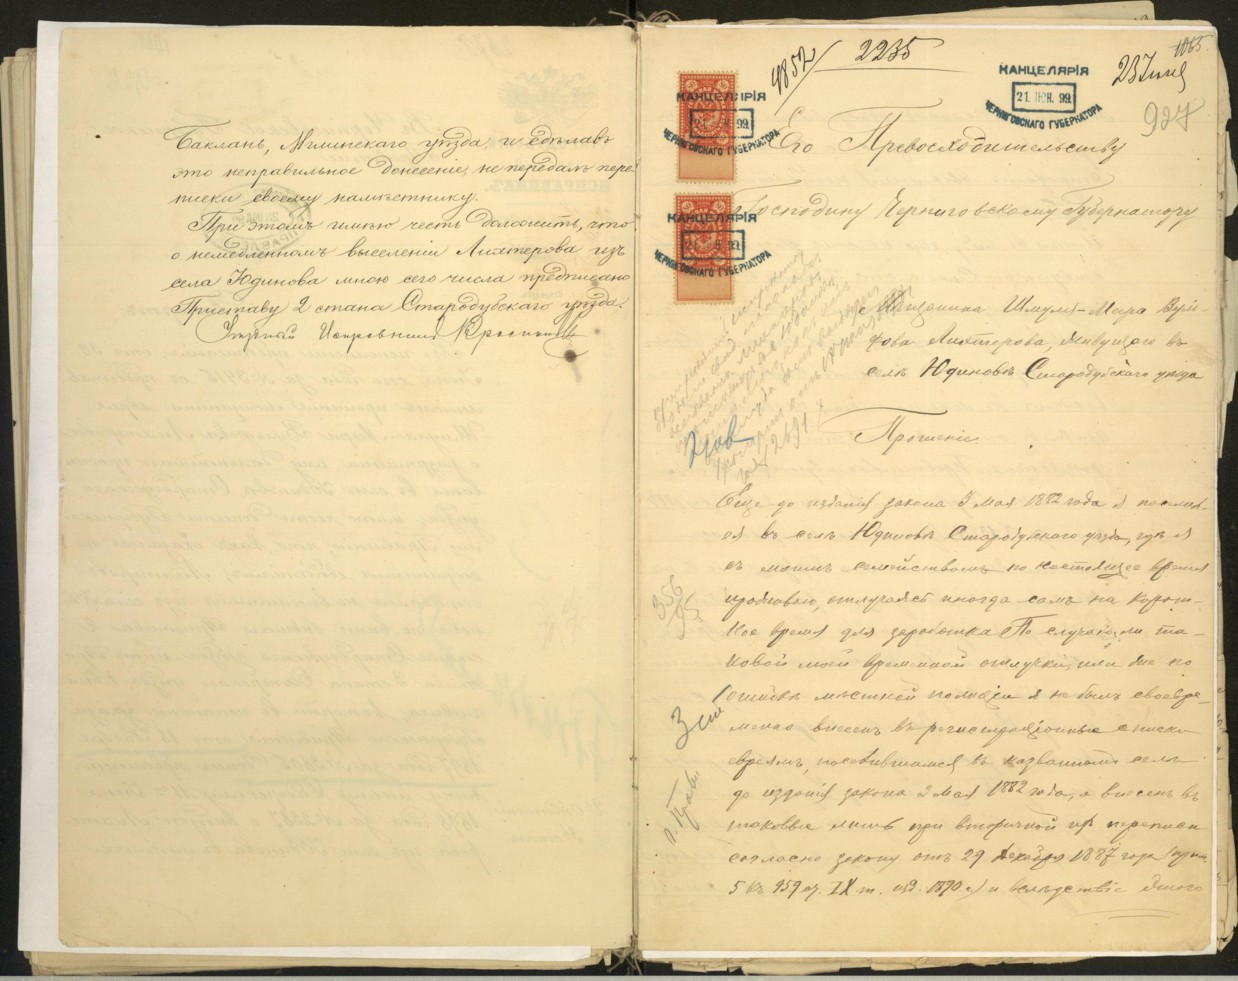 Баклань, Мглинскаго уѣзда и сдѣлавъ
это неправильное донесеніе, не передалъ пере-
писки своему намѣстнику.
При этомъ имѣю честь доложить, что
о немедленномъ выселеніи Ляхтерова изъ
села Юдинова мною сего числа предписано
Приставу 2 стана Стародубскаго уѣзда.
Уѣздный Исправникъ
4852/2235
КАНЦЕЛЯРІЯ
21 ІЮН. 99
ЧЕРНИГОВСКАГО ГУБЕРНАТОРА
КАНЦЕЛЯРІЯ
ЧЕРНИГОВСКАГО ГУБЕРНАТОРА
КАНЦЕЛЯРІЯ
ЧЕРНИГОВСКАГО ГУБЕРНАТОРА
23 Іюня
1065
927
Его Превосходительству
Господину Черниговскому Губернатору
Мѣщанина Шмуля-Мера Вуль-
фова Ляхтерова, живущаго въ
селѣ Юдиновѣ Стародубскаго уѣзда
Прошеніе.
2691
Еще до изданія закона 3 мая 1882 года я поселил-
ся въ селѣ Юдиновѣ Стародубскаго уѣзда, гдѣ я
съ моимъ семействомъ по настоящее время
проживаю, отлучаясь иногда самъ на корот-
кое время для заработка. По случаю ли та-
ковой моей временной отлучки, или же по
ошибкѣ мѣстной полиціи я не былъ своевре-
менно внесенъ въ регистраціонные списки
евреямъ, поселившимся въ названномъ селѣ
до изданія закона 3 мая 1882 года, а внесенъ въ
таковые лишь при вторичной ихъ переписи
согласно закону отъ 29 декабря 1887 года (прим.
5 къ 959 ст. IX т. изд. 1890 г.) и вслѣдствіе этого
356
95
3 ст.